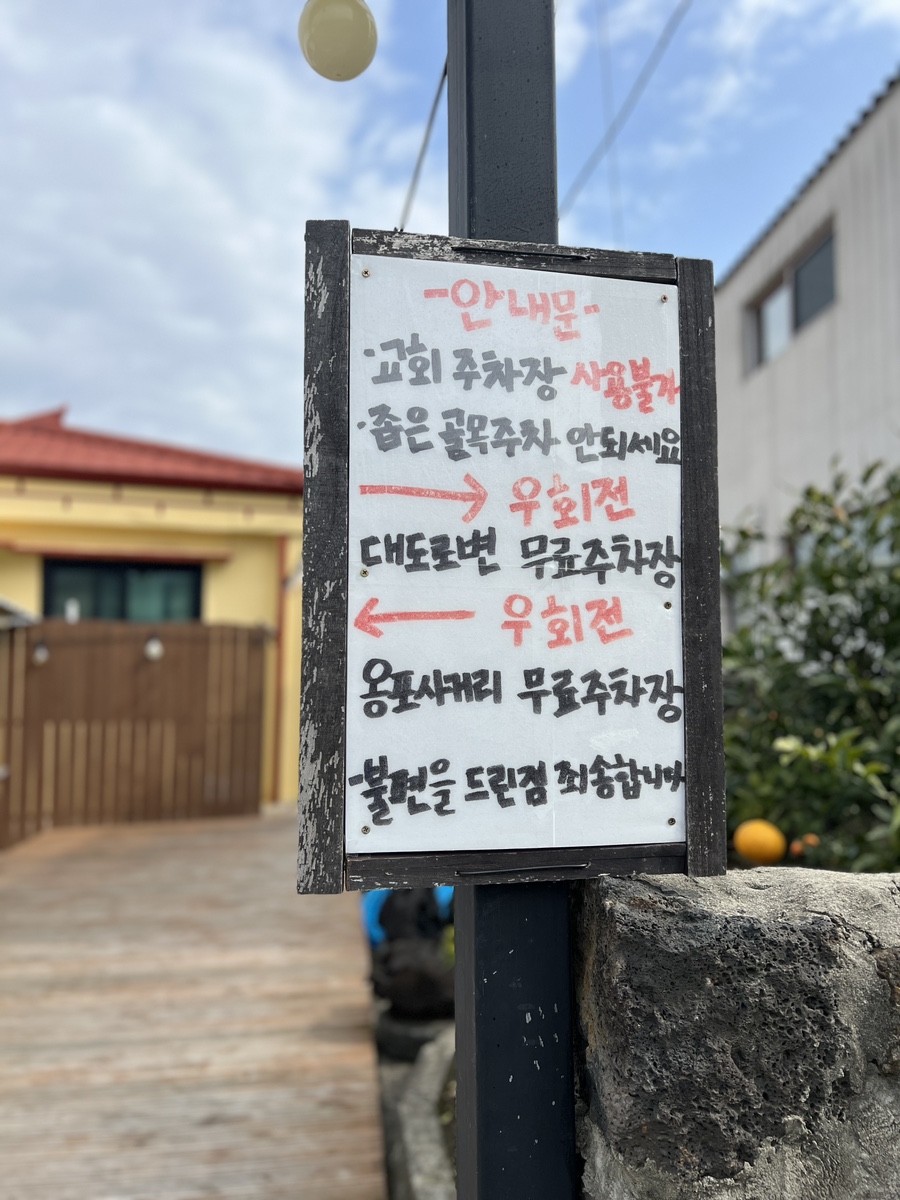 -안내문-
·교회 주차장 사용불가
·좁은 골목주차 안되세요
→ 우회전
대도로변 무료주차장
← 우회전
옹포사거리 무료주차장
-불편을 드린점 죄송합니다